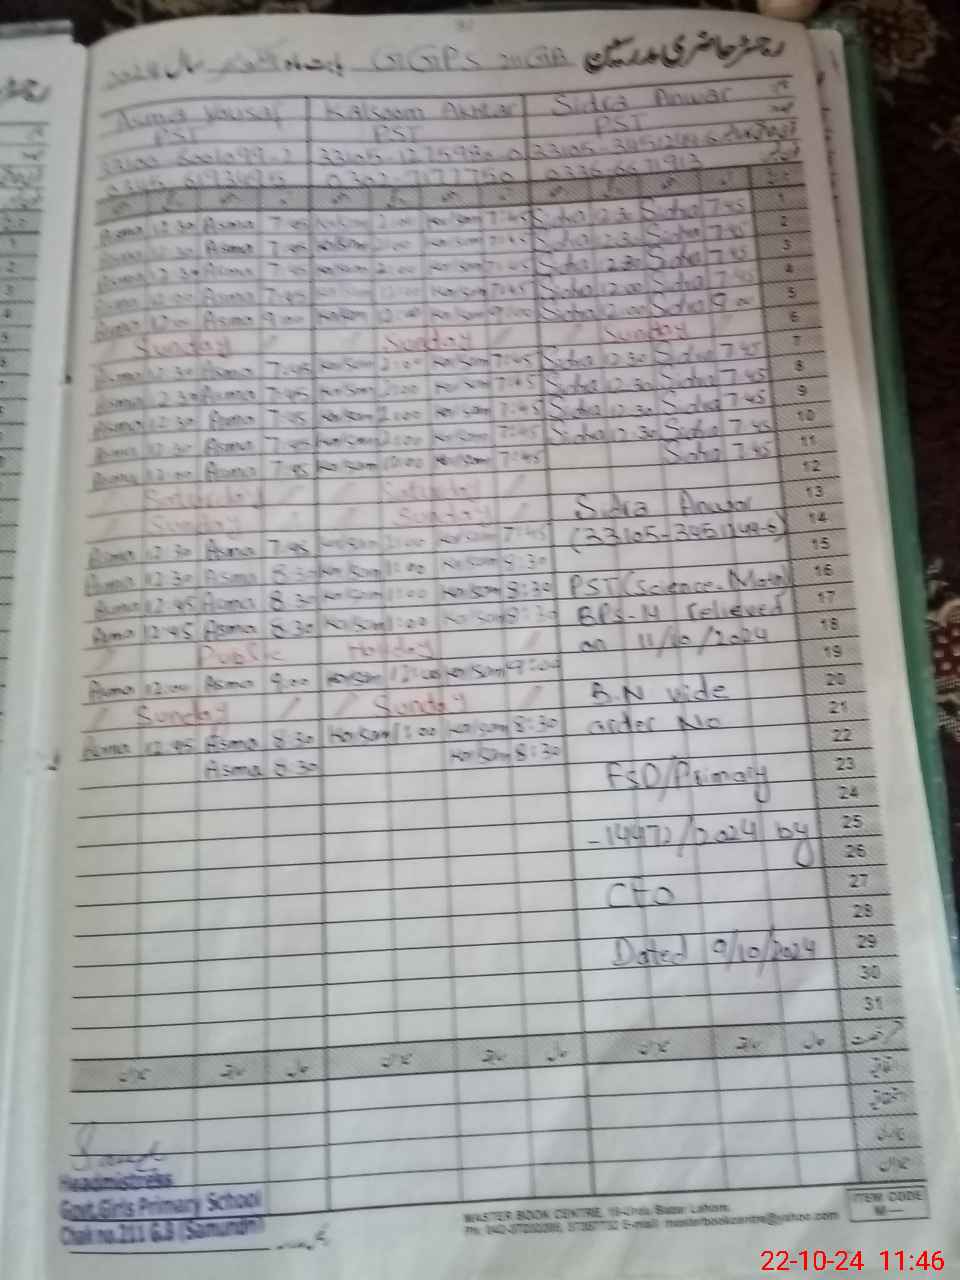 رجسٹر حاضری مدرسین GGPS 211GB بابت ماہ اکتوبر سال 2024
Asma Yousaf Kalsoom Akhtar Sidra Anwar
PST PST PST
0302-7177750 0336-6671913
Asma 12:30 Asma 7:45 Kalsom 2:00 Kalsom 7:45 Sidra 12:30 Sidra 7:45 1
Asma 12:30 Asma 7:45 Kalsom 2:00 Kalsom 7:45 Sidra 12:30 Sidra 7:45 2
Asma 12:30 Asma 7:45 Kalsom 2:00 Kalsom 7:45 Sidra 12:30 Sidra 7:45 3
Asma 12:00 Asma 7:45 Kalsom 12:00 Kalsom 7:45 Sidra 12:00 Sidra 7:45 4
Asma 12:00 Asma 9:00 Kalsom 12:00 Kalsom 9:00 Sidra 12:00 Sidra 9:00 5
Sunday Sunday Sunday 6
Asma 12:30 Asma 7:45 Kalsom 2:00 Kalsom 7:45 Sidra 12:30 Sidra 7:45 7
Asma 12:30 Asma 7:45 Kalsom 2:00 Kalsom 7:45 Sidra 12:30 Sidra 7:45 8
Asma 12:30 Asma 7:45 Kalsom 2:00 Kalsom 7:45 Sidra 12:30 Sidra 7:45 9
Asma 12:30 Asma 7:45 Kalsom 2:00 Kalsom 7:45 Sidra 12:30 Sidra 7:45 10
Asma 12:00 Asma 7:45 Kalsom 12:00 Kalsom 7:45 Sidra 7:45 11
Saturday Saturday 12
Sunday Sunday Sidra Anwar 13
Asma 12:30 Asma 7:45 Kalsom 2:00 Kalsom 7:45 (33105-3451244-6) 14
Asma 12:30 Asma 8:30 Kalsom 1:00 Kalsom 8:30 15
Asma 12:45 Asma 8:30 Kalsom 1:00 Kalsom 8:30 PST (Science-Math) 16
Asma 12:45 Asma 8:30 Kalsom 1:00 Kalsom 8:30 BPS-14 relieved 17
Public Holiday on 11/10/2024 18
Asma 12:00 Asma 9:00 Kalsom 12:00 Kalsom 9:00 19
Sunday Sunday B.N vide 20
Asma 12:45 Asma 8:30 Kalsom 1:00 Kalsom 8:30 order No 21
Asma 8:30 Kalsom 8:30 22
FSD/Primary 23
24
-14472/2024 by 25
26
CEO 27
28
Dated 9/10/2024 29
30
31
Headmistress
Govt.Girls Primary School
Chak no.211 G.B (Samundri)
MASTER BOOK CENTRE, 19-Urdu Bazar Lahore.
E-mail: masterbookcentre@yahoo.com
ITEM CODE
M—
22-10-24 11:46